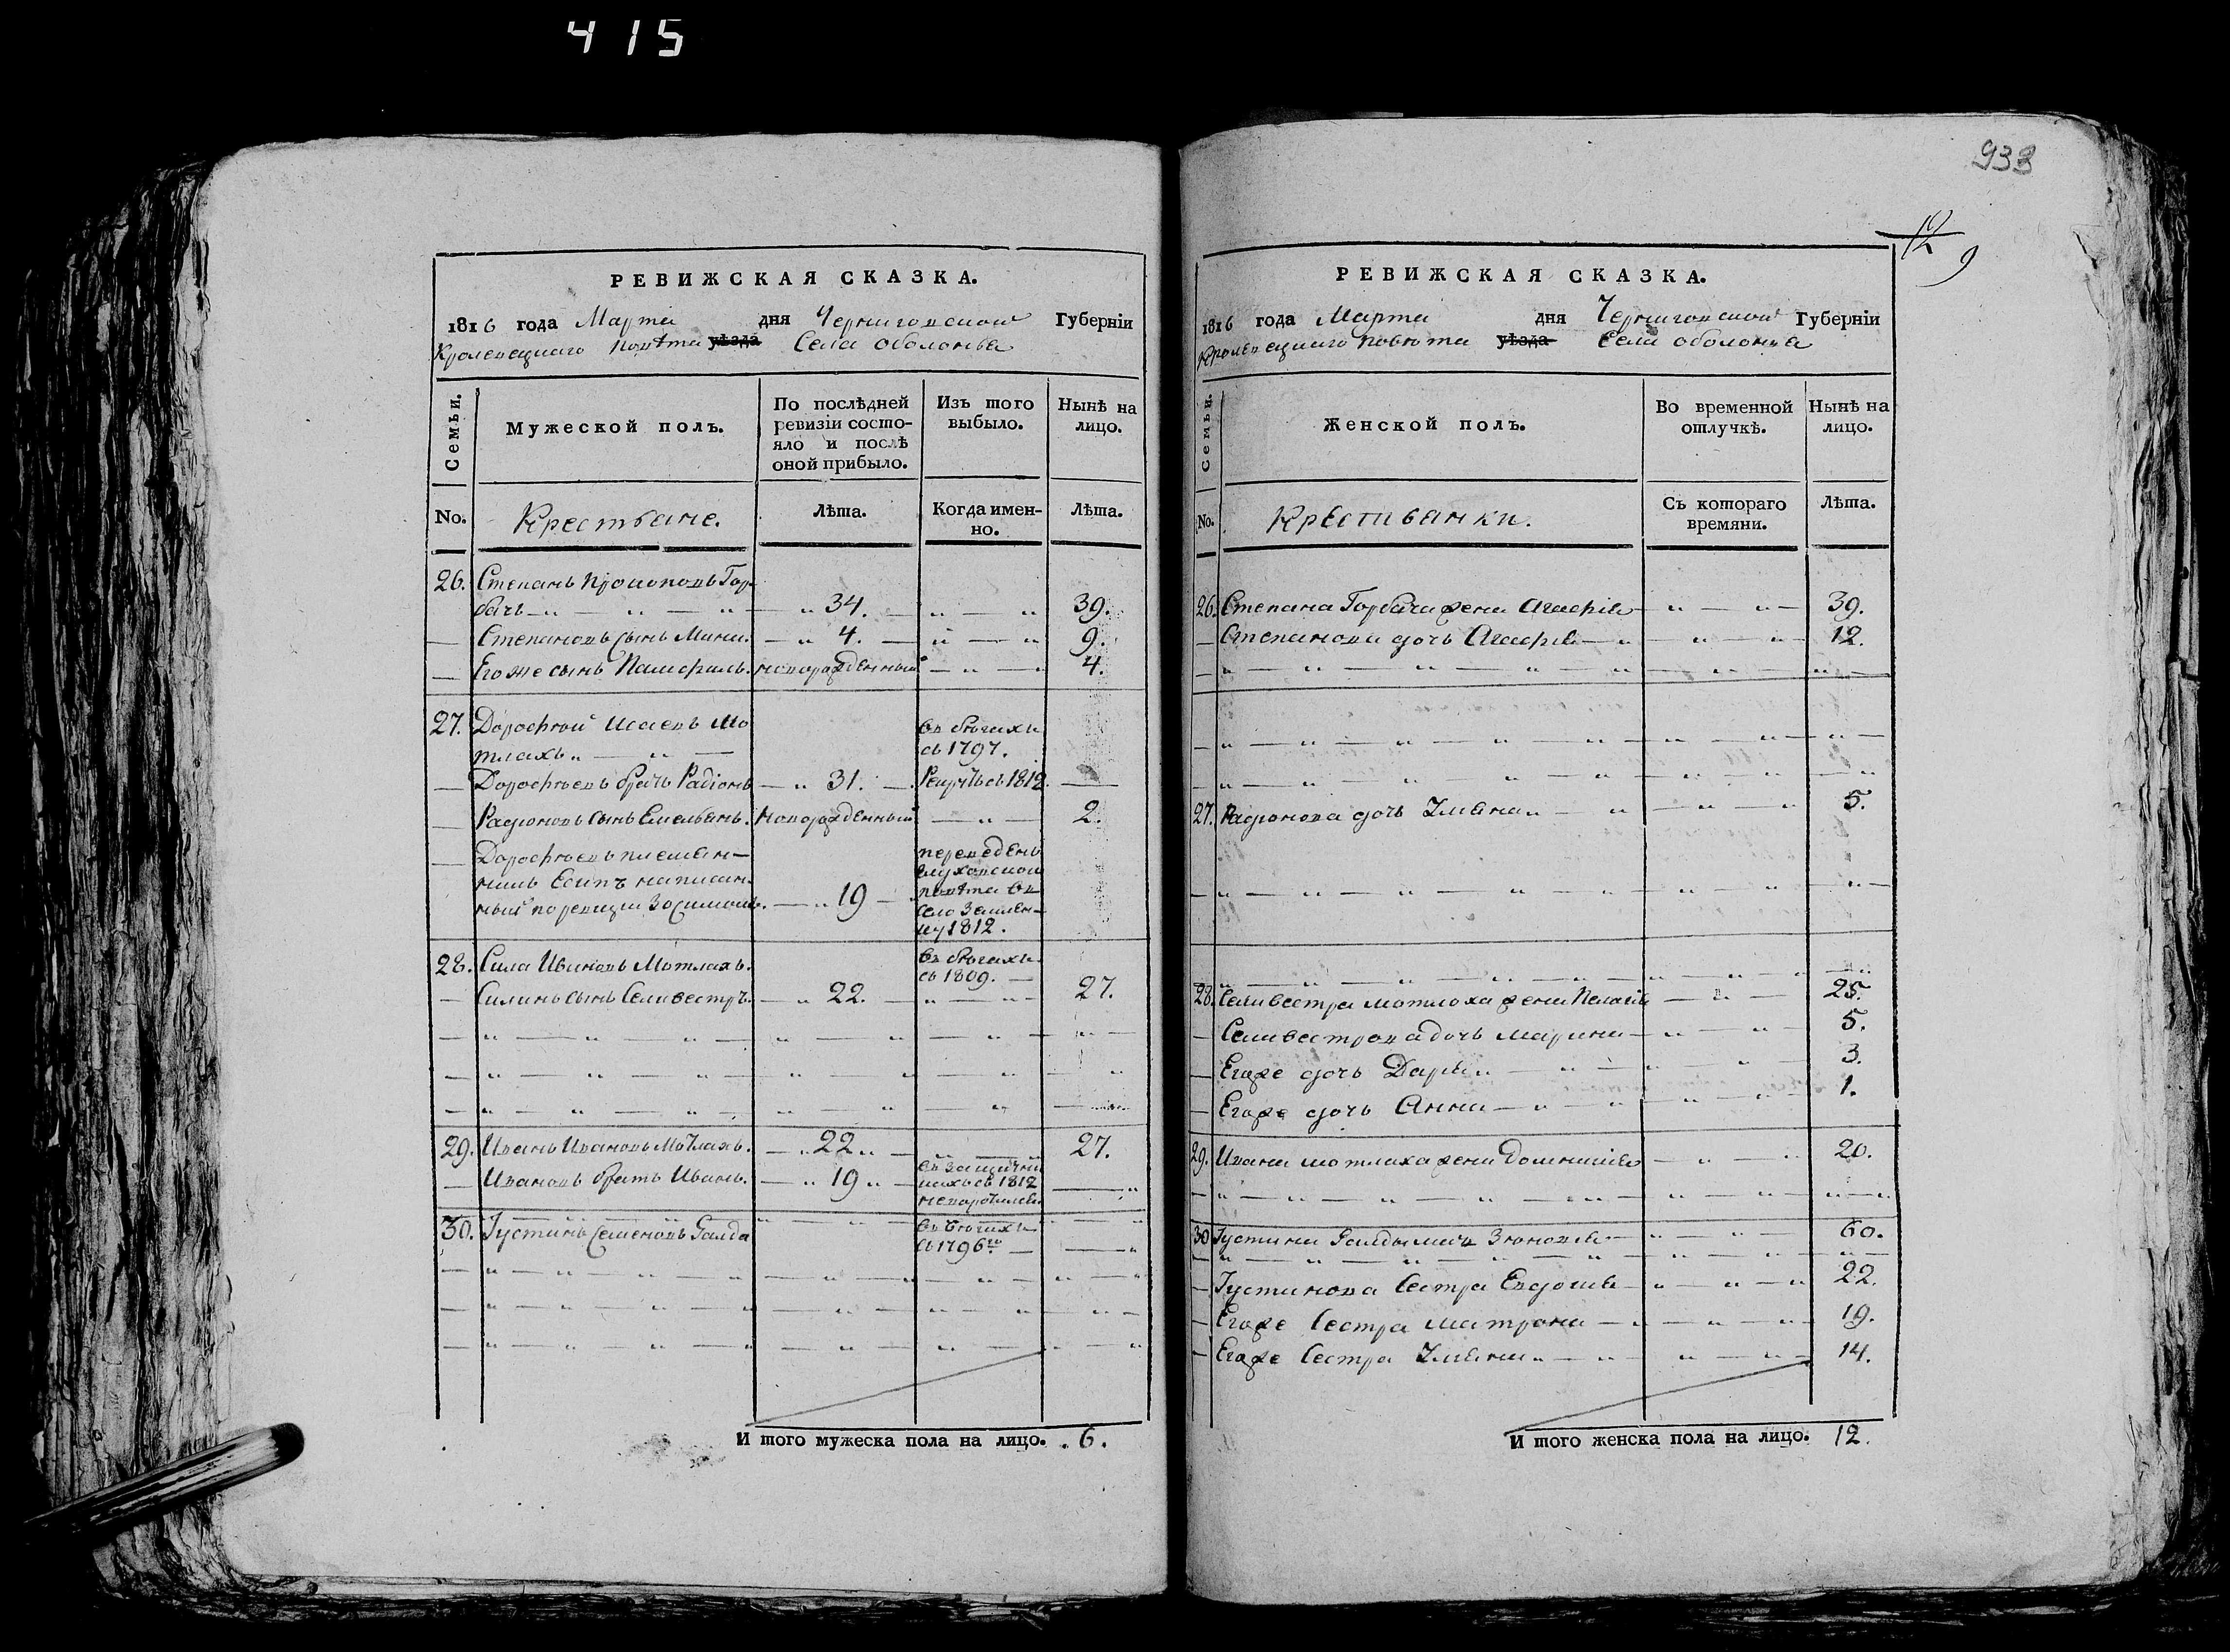 415
РЕВИЖСКАЯ СКАЗКА.
1816 года Марта дня Черниговской Губерніи
Кролевецкаго повѣта уѣзда Села оболонья
Семьи.
Мужеской полъ.
По послѣдней ревизіи состо-
яло и послѣ
оной прибыло.
Изъ того
выбыло.
Нынѣ на
лицо.
No.
Крестьяне.
Лѣта.
Когда имен-
но.
Лѣта.
26. Степанъ Прокоповъ Гор-
бачъ 34. 39.
Степановъ сынъ Мина. 4. 9.
Его же сынъ Памфилъ. новорожденный 4.
27. Дорофѣй Исаевъ Мо
тлахъ въ бѣгахъ
съ 1797.
Дорофѣевъ братъ Радіонъ 31. Рекрутъ съ 1812.
Радіоновъ сынъ Емельянъ. новорожденный 2.
Дорофѣевъ племян-
никъ Есипъ написан-
ный по ревизіи Зосимомъ. 19
переведенъ
Глуховской
повѣта въ
село Землян-
ку 1812.
28. Сила Ивановъ Мотлахъ. въ бѣгахъ
съ 1809.
Силинъ сынъ Селивестръ. 22. 27.
29. Иванъ Ивановъ Мотлахъ. 22 27.
Ивановъ братъ Иванъ. 19 съ 1812
30. Іустинъ Семеновъ Галда въ бѣгахъ
съ 1796го
И того мужеска пола на лицо. 6.
933
12
9
РЕВИЖСКАЯ СКАЗКА.
1816 года Марта дня Черниговской Губерніи
Кролевецкаго повѣта уѣзда Села оболонья
Семьи.
Женской полъ.
Во временной
отлучкѣ.
Нынѣ на
лицо.
No.
Крестьянки.
Съ котораго
времяни.
Лѣта.
26. Степана Горбача жена Агафія 39.
Степанова дочь Агафія 12.
27. Радіонова дочь Уляна 5.
28. Селивестра мотлоха жена Пелагія 25.
Селивестрова дочь марина 5.
Егоже дочь Дарія 3.
Егоже дочь Анна 1.
29. Ивана мотлаха жена Домникія 20.
30 Іустина Галды мать Зѣновія 60.
Іустинова Сестра Евдокія 22.
Егоже Сестра матрона 19.
Егоже Сестра Уляна 14.
И того женска пола на лицо. 12.